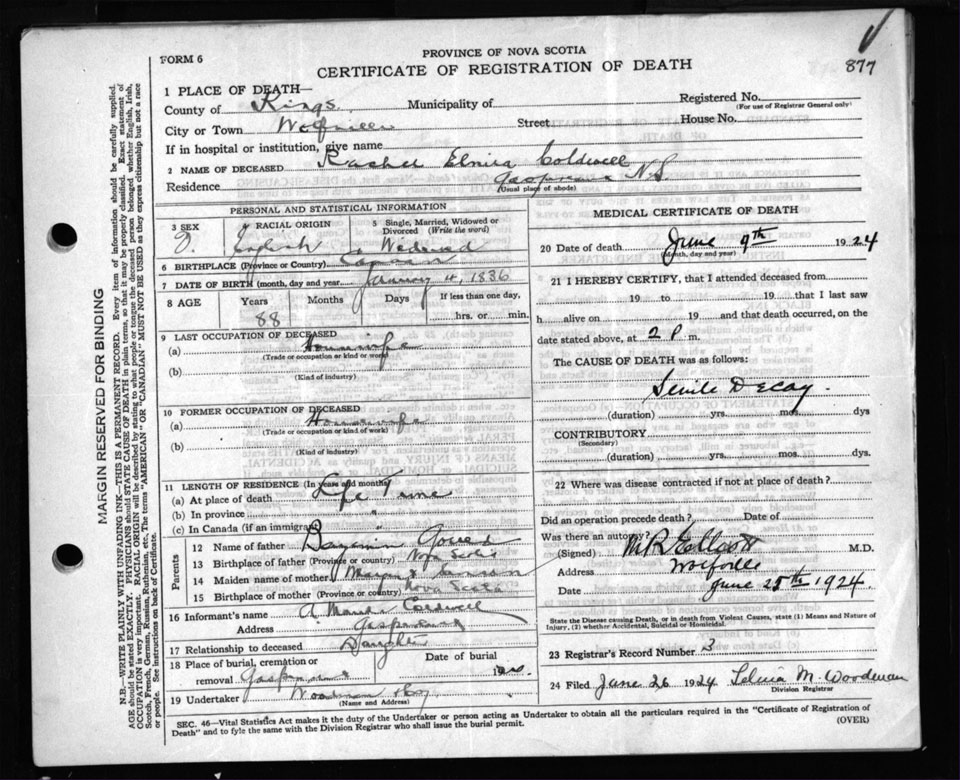 877
FORM 6
PROVINCE OF NOVA SCOTIA
CERTIFICATE OF REGISTRATION OF DEATH
MARGIN RESERVED FOR BINDING
N.B.—WRITE PLAINLY WITH UNFADING INK—THIS IS A PERMANENT RECORD. Every item of information should be carefully supplied.
AGE should be stated EXACTLY. PHYSICIANS should STATE CAUSE OF DEATH in plain terms, so that it may be properly classified. Exact statement of
OCCUPATION is very important. RACIAL ORIGIN will be described by stating to what people or tongue the deceased person belonged whether English, Irish,
Scotch, French, German, Russian, Ruthenian, etc. The terms "AMERICAN" or "CANADIAN" MUST NOT BE USED as they express citizenship but not a race
or people. See instructions on back of Certificate.
1 PLACE OF DEATH—
County of Kings Municipality of Registered No.
(For use of Registrar General only)
City or Town Wolfville Street House No.
If in hospital or institution, give name
2 NAME OF DECEASED Rachel Elmira Coldwell
Residence Gaspereau N.S.
(Usual place of abode)
PERSONAL AND STATISTICAL INFORMATION
3 SEX 4 RACIAL ORIGIN English 5 Single, Married, Widowed or Divorced (Write the word) Widowed
6 BIRTHPLACE (Province or Country)
7 DATE OF BIRTH (month, day and year) January 4, 1836
8 AGE Years 88 Months Days If less than one day, hrs. or min.
9 LAST OCCUPATION OF DECEASED
(a) Housewife
(Trade or occupation or kind of work)
(b)
(Kind of industry)
10 FORMER OCCUPATION OF DECEASED
(a) Housewife
(Trade or occupation or kind of work)
(b)
(Kind of industry)
11 LENGTH OF RESIDENCE (In years and months)
(a) At place of death Life Time
(b) In province "
(c) In Canada (if an immigrant) "
Parents
12 Name of father Benjamin
13 Birthplace of father (Province or country) Nova Scotia
14 Maiden name of mother
15 Birthplace of mother (Province or country) Nova Scotia
16 Informant's name Coldwell
Address Gaspereau
17 Relationship to deceased Daughter
18 Place of burial, cremation or removal Gaspereau Date of burial 19
19 Undertaker Woodman
(Name and Address)
MEDICAL CERTIFICATE OF DEATH
20 Date of death June 9th 1924
(Month, day and year)
21 I HEREBY CERTIFY, that I attended deceased from
19 to 19 that I last saw
h alive on 19 and that death occurred, on the
date stated above, at 2 P m.
The CAUSE OF DEATH was as follows:
Senile Decay.
(duration) yrs. mos. dys
CONTRIBUTORY
(Secondary)
(duration) yrs. mos. dys.
22 Where was disease contracted if not at place of death?
Did an operation precede death? Date of
Was there an autopsy?
(Signed) M.R. Elliott M.D.
Address Wolfville
Date June 25th 1924.
State the Disease causing Death, or in death from Violent Causes, state (1) Means and Nature of
Injury, (2) whether Accidental, Suicidal or Homicidal.
23 Registrar's Record Number 3
24 Filed June 26 1924 M. Woodman
Division Registrar
SEC. 46—Vital Statistics Act makes it the duty of the Undertaker or person acting as Undertaker to obtain all the particulars required in the "Certificate of Registration of
Death" and to fyle the same with the Division Registrar who shall issue the burial permit. (OVER)